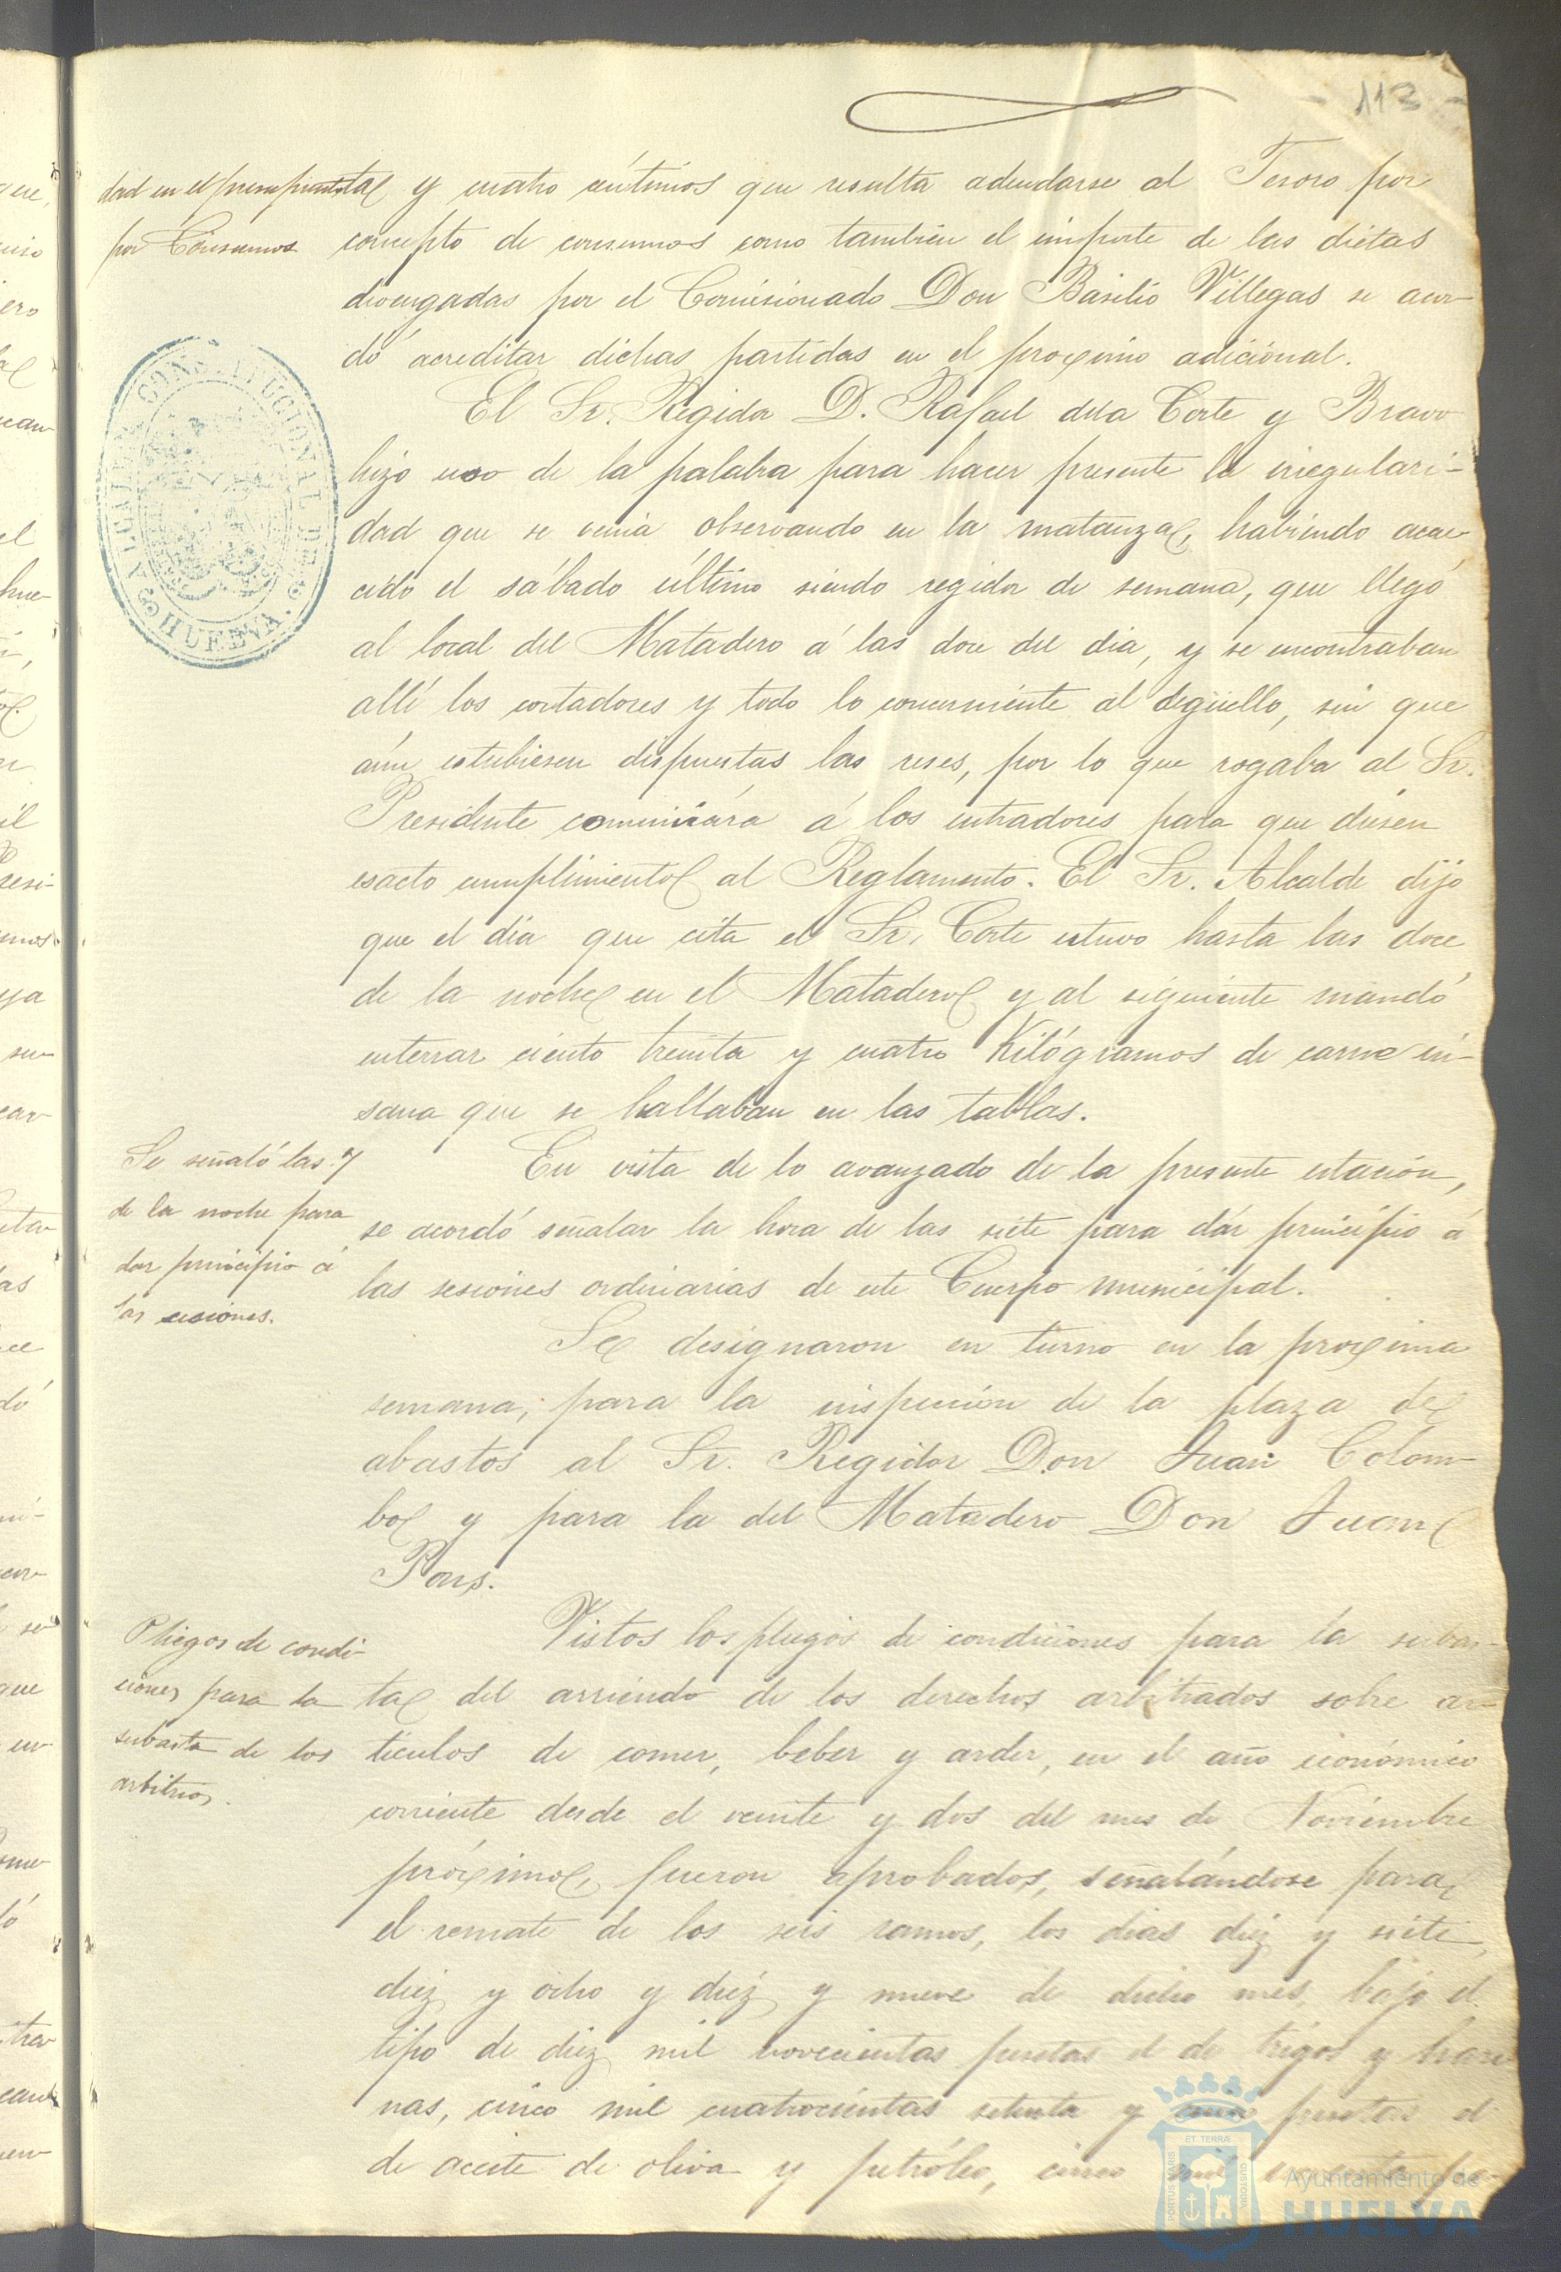 113
dad en el presupuesto
por Consumos
tas y cuatro céntimos que resulta adeudarse al Tesoro por
concepto de consumos como tambien el importe de las dietas
devengadas por el Comisionado Don Basilio Villegas se acor-
dó acreditar dichas partidas en el proximo adicional.
El Sr. Regidor D. Rafael dela Corte y Bravo
hizo uso de la palabra para hacer presente la irregulari-
dad que se venia observando en la matanza, habiendo acae-
cido el sábado último siendo regidor de semana, que llegó
al local del Matadero á las doce del dia, y se encontraban
allí los cortadores y todo lo concerniente al degüello, sin que
aún estubiesen dispuestas las reses, por lo que rogaba al Sr.
Presidente comunicára á los entradores para que diesen
esacto cumplimiento al Reglamento. El Sr. Alcalde dijo
que el día que cita el Sr. Corte estuvo hasta las doce
de la noche en el Matadero y al siguiente mandó
enterrar ciento treinta y cuatro Kilógramos de carne in-
sana que se hallaban en las tablas.
Se señaló las 7
de la noche para
dar principio á
las sesiones.
En vista de lo avanzado de la presente estación,
se acordó señalar la hora de las siete para dár principio á
las sesiones ordinarias de este Cuerpo municipal.
Se designaron en turno en la proxima
semana, para la inspección de la plaza de
abastos al Sr. Regidor Don Juan Colom-
bo y para la del Matadero Don Juan
Pons.
Pliegos de condi-
ciones para la
subasta de los
arbitrios.
Vistos los pliegos de condiciones para la subas-
ta del arriendo de los derechos arbitrados sobre ar-
tículos de comer, beber y arder, en el año económico
corriente desde el veinte y dos del mes de Noviembre
próximo, fueron aprobados, señalándose para
el remate de los seis ramos, los dias diez y siete,
diez y ocho y diez y nueve de dicho mes, bajo el
tipo de diez mil novecientas pesetas el de trigos y hari-
nas, cinco mil cuatrocientas setenta y cinco pesetas el
de aceite de oliva y petróleo, cinco mil
ALCALDIA CONSTITUCIONAL DE
HUELVA.
PORTUS MARIS
ET TERRÆ
CUSTODIA
Ayuntamiento de
HUELVA